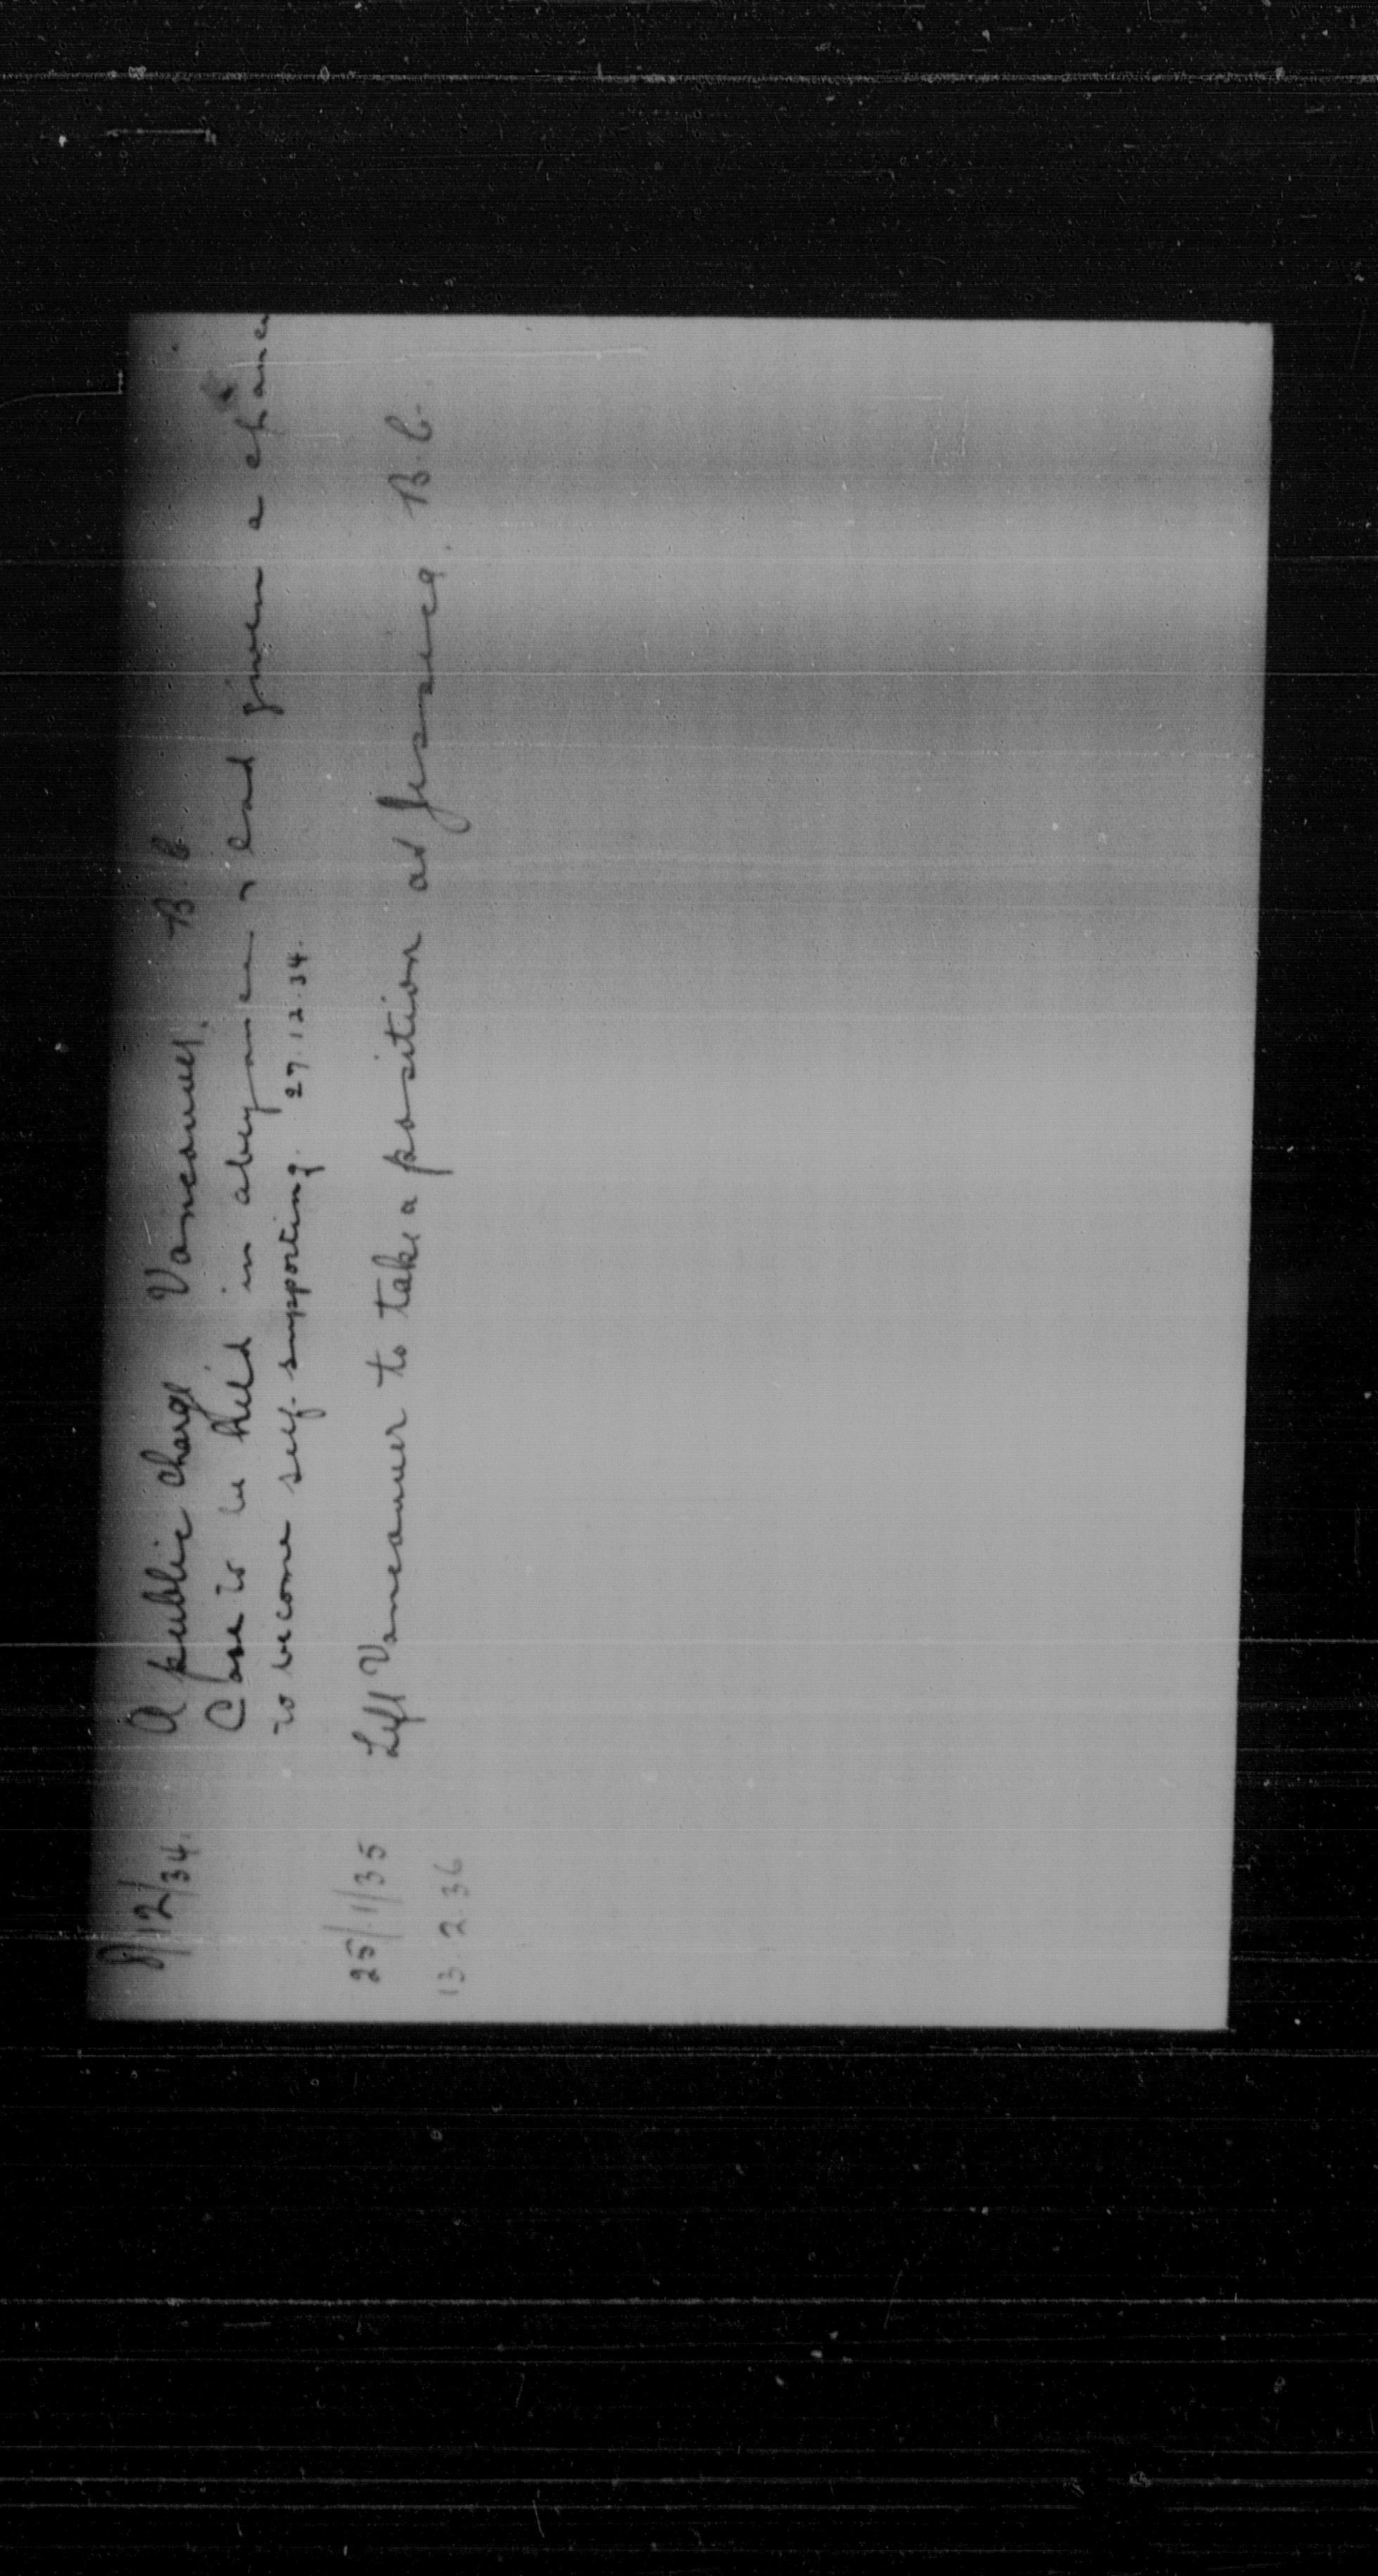 8/12/34. A public charge Vancouver. B.C.
Case to be held in abeyance & lad given a chance
to become self-supporting. 27.12.34.
25/1/35 Left Vancouver to take a position at B.C.
13.2.36